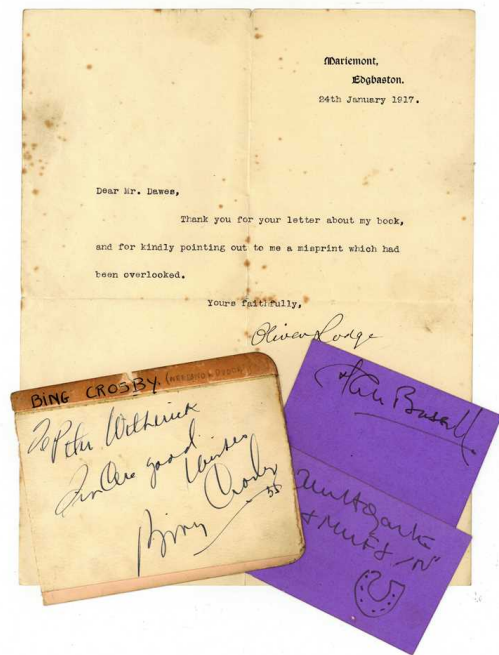 Mariemont,
Edgbaston.
24th January 1917.
Dear Mr. Dawes,
Thank you for your letter about my book,
and for kindly pointing out to me a misprint which had
been overlooked.
Yours faithfully,
Oliver Lodge
BING CROSBY.
To Peter Witherick
Sincere good
Wishes
Bing Crosby